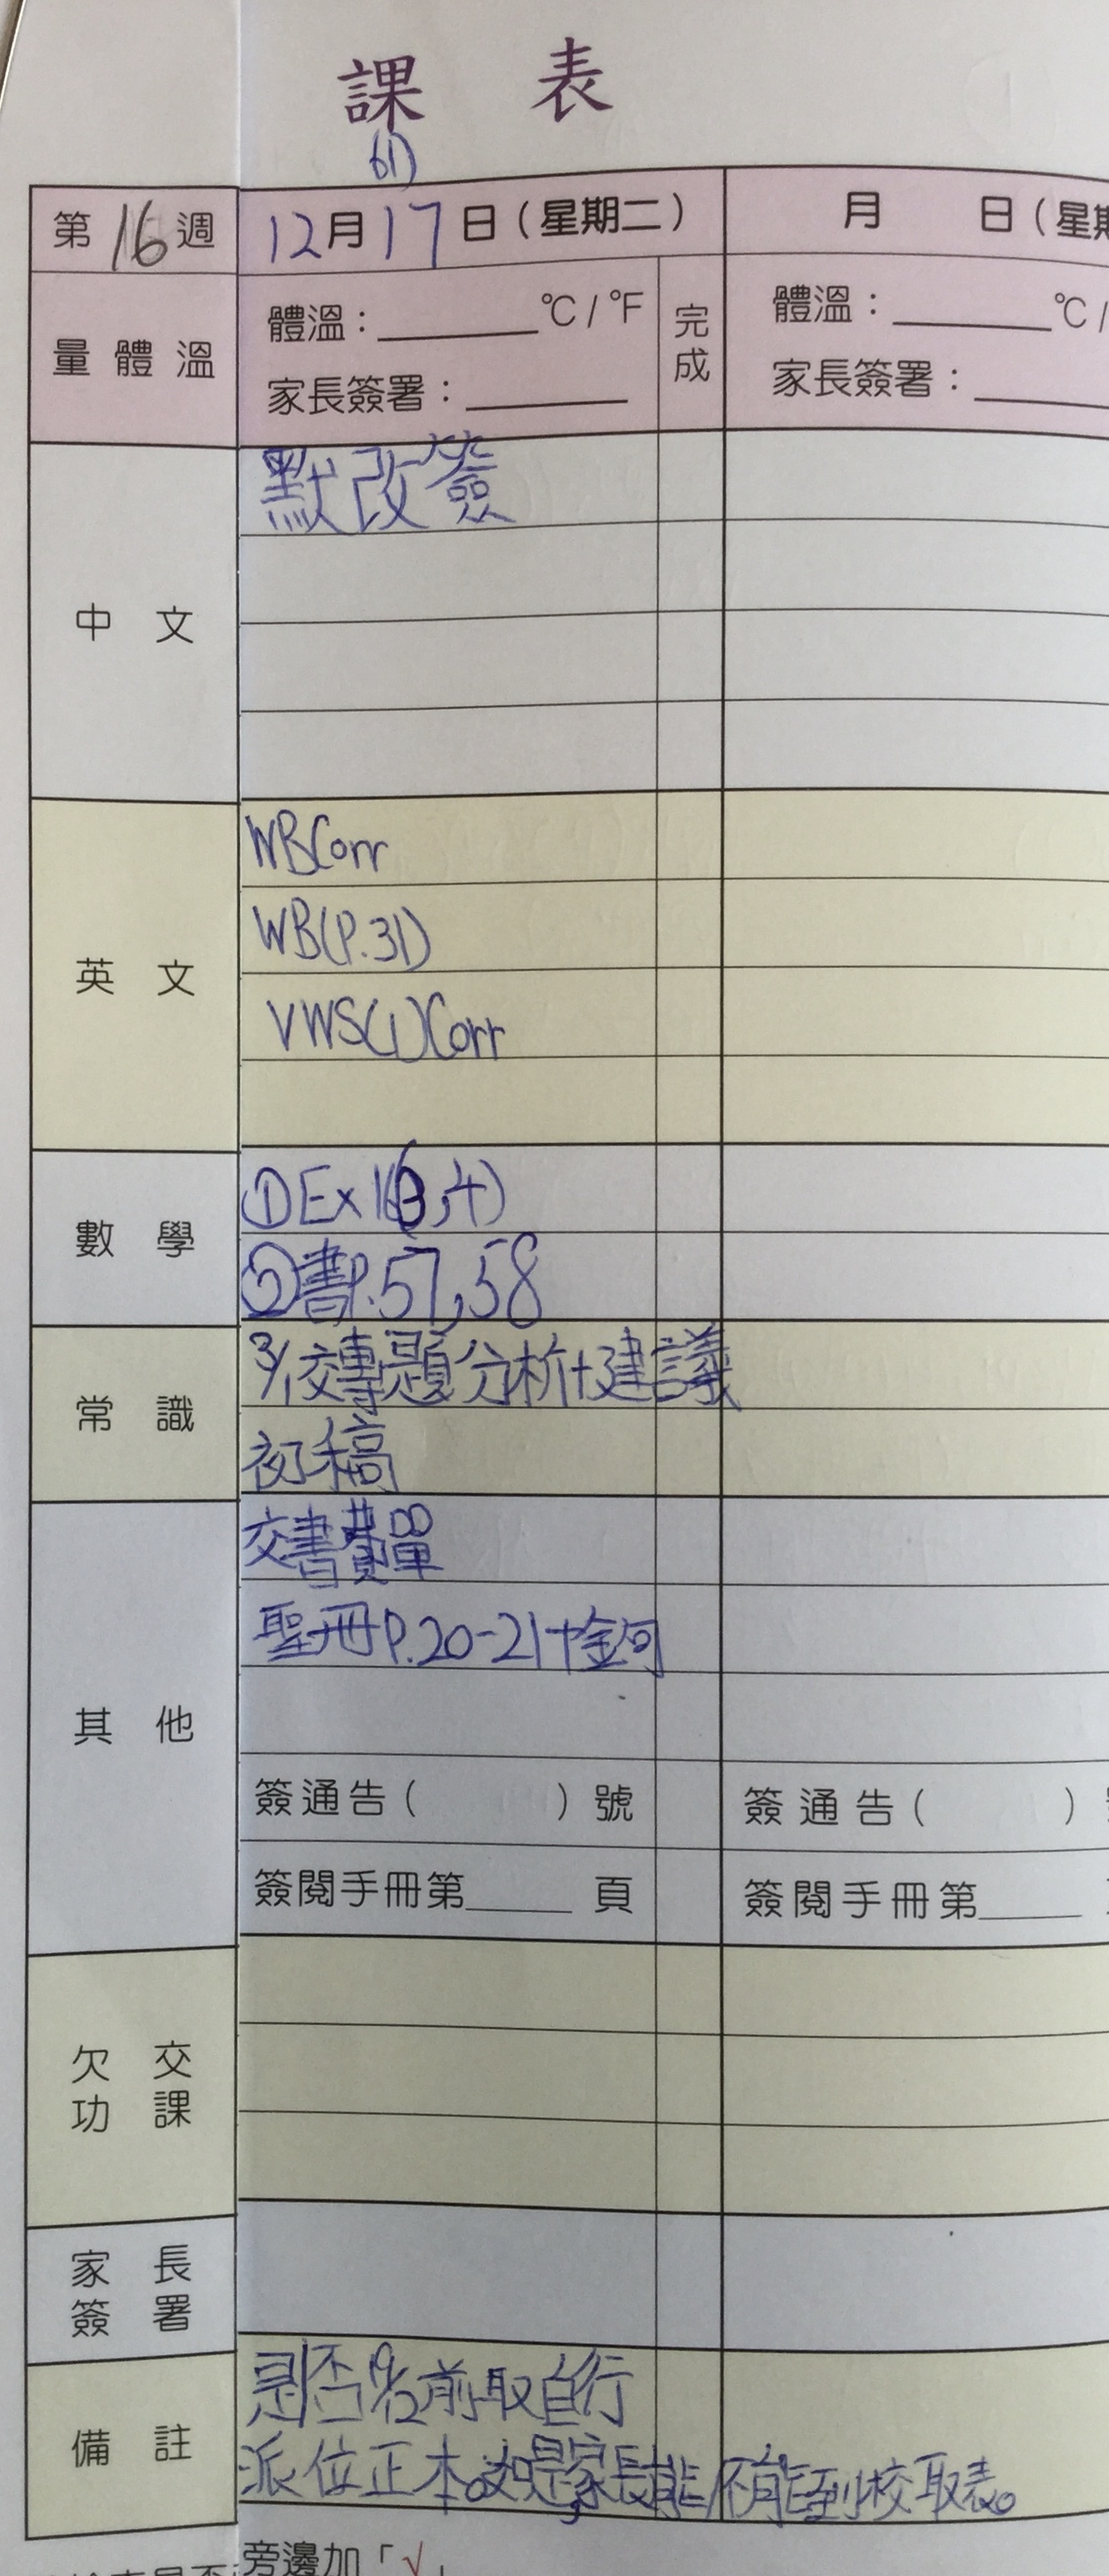 課 表
61)
第16週 12月17日(星期二) 月 日(星期
量體溫 體溫:______°C / °F 完成 體溫:______°C /
家長簽署:______ 家長簽署:
中文 默改簽
英文 WBCorr
WB(P.31)
VWS(1)Corr
數學 ①Ex16(3,4)
②書P.57,58
常識 3/1交專題分析+建議
初稿
其他 交書費單
聖冊P.20-21+金句
簽通告( )號 簽通告( )
簽閱手冊第____頁 簽閱手冊第____
欠交功課
家長簽署
備註 是否 前取自行
派位正本。如是,家長能/不能到校取表。
旁邊加「√」